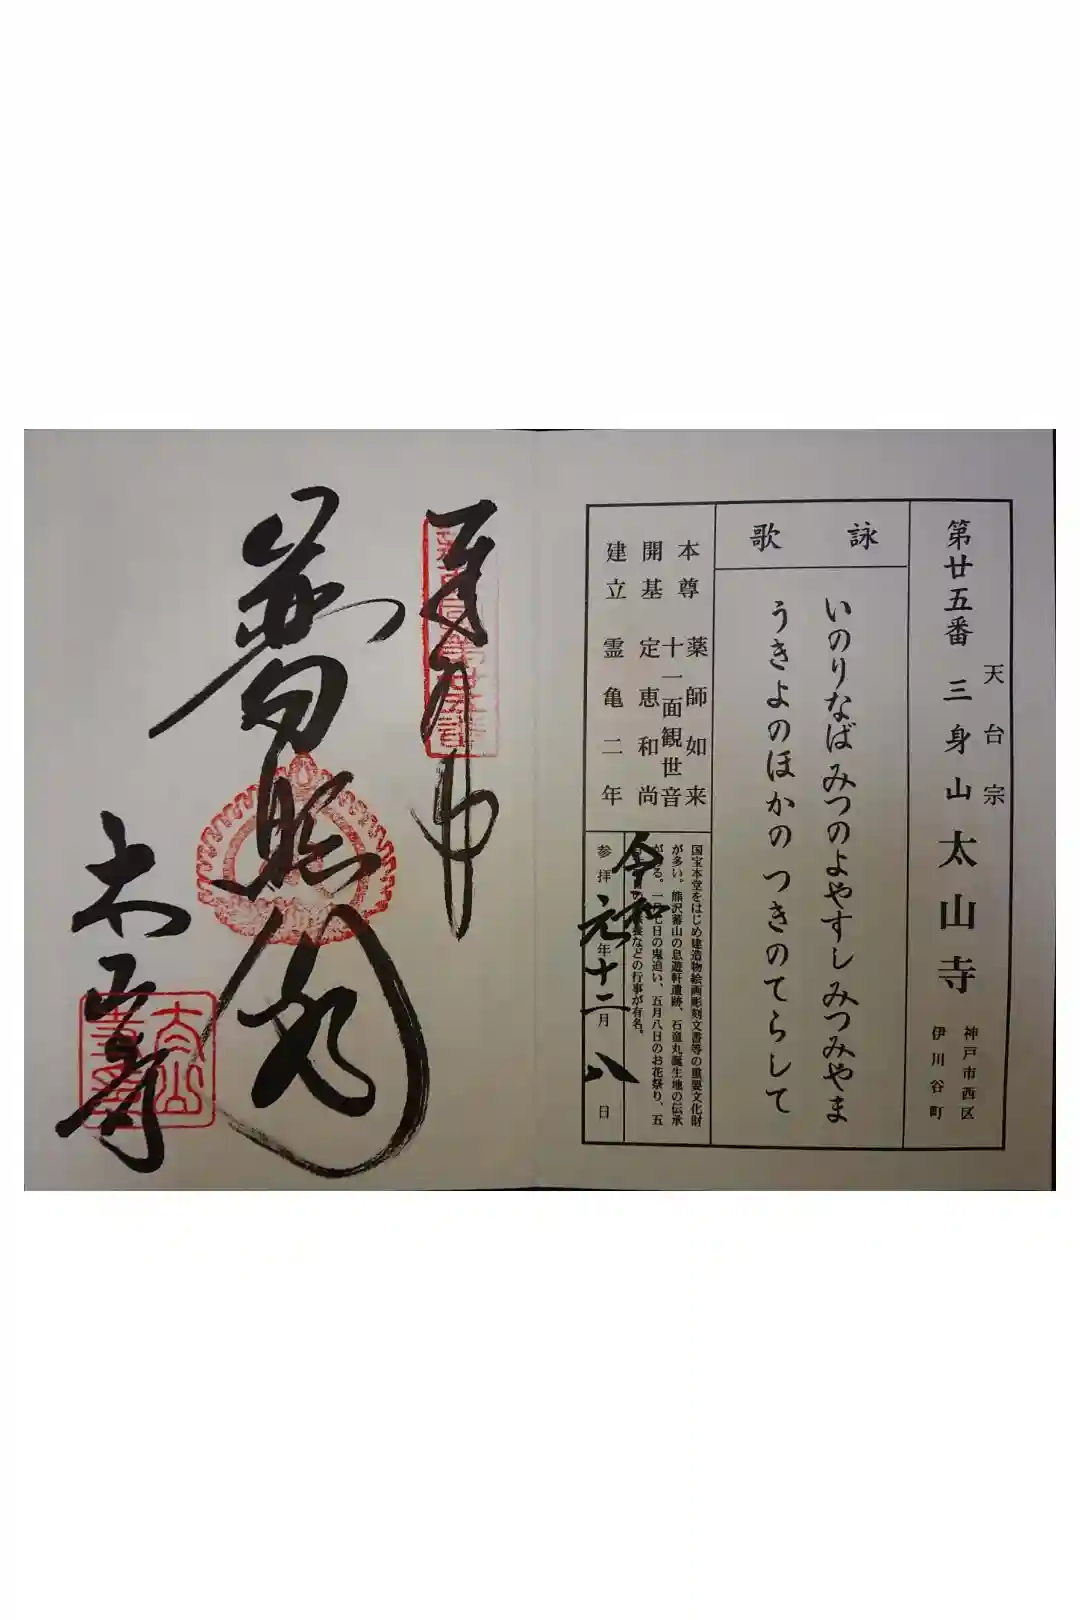 天台宗
第廿五番 三身山 太山寺
神戸市西区
伊川谷町
詠歌
いのりなば みつのよやすし みつみやま
うきよのほかの つきのてらして
本尊 薬師如来
十一面観世音
開基 定恵和尚
建立 霊亀二年
国宝本堂をはじめ建造物絵画彫刻文書等の重要文化財
が多い。熊沢蕃山の息遊軒遺跡、石童丸誕生地の伝承
がある。一月七日の鬼追い、五月八日のお花祭り、五
などの行事が有名。
参拝 令和元年十二月八日
奉拝
薬師如来
太山寺